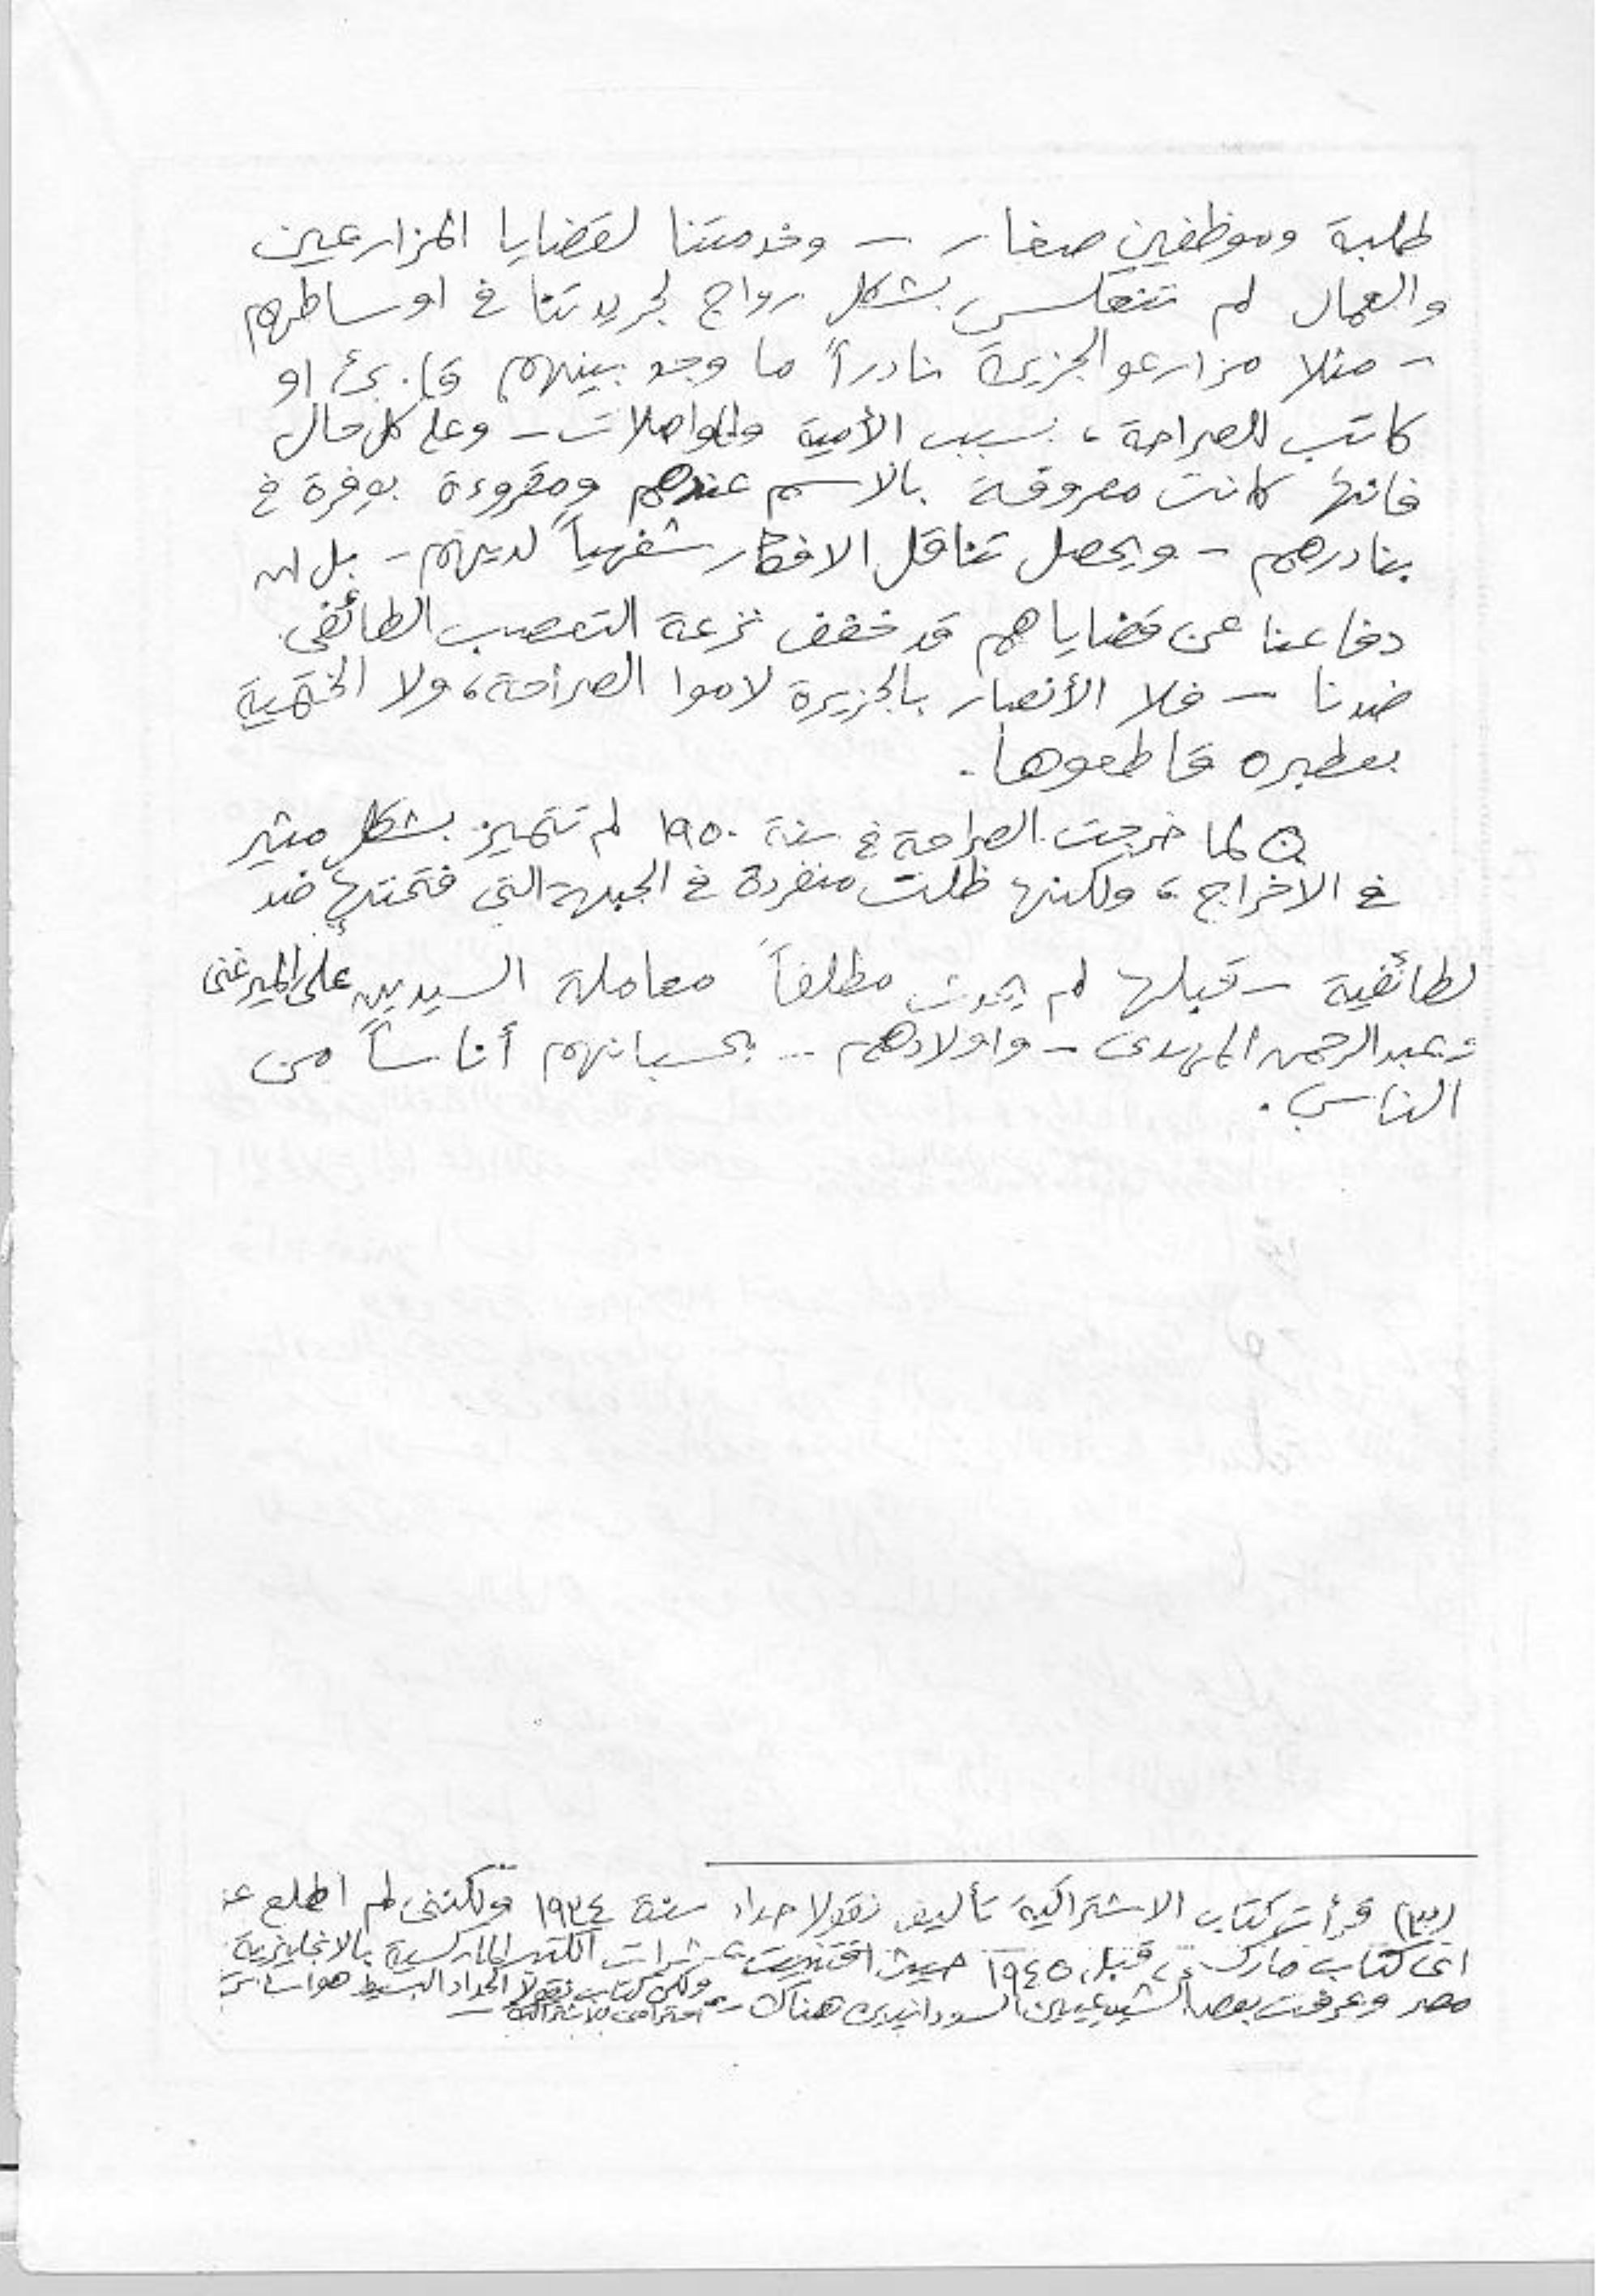 طلبة وموظفين صغار — وخدمتنا لقضايا المزارعين
والعمال لم تنعكس بشكل رواج لجريدتنا في اوساطهم
– مثلا مزارعو الجزيرة نادراً ما وجد بينهم قارئ او
كاتب للصراحة، بسبب الأمية والمواصلات – وعلى كل حال
فانها كانت معروفة بالاسم عندهم ومقروءة بوفرة في
بنادرهم – ويحصل تناقل الافكار شفهياً لديهم – بل ان
دفاعنا عن قضاياهم قد خفف نزعة التعصب الطائفي
ضدنا – فلا الأنصار بالجزيرة لاموا الصراحة، ولا الختمية
بعطبره قاطعوها.
لما خرجت الصراحة في سنة ١٩٥٠ لم تتميز بشكل مثير
في الاخراج، ولكنها ظلت منفردة في الجبهة التي فتحتها ضد
لطائفية – قبلها لم يحدث مطلقاً معاملة السيدين على الميرغنى
وعبدالرحمن المهدى – واولادهم .. بحسبانهم أناساً من
الناس.
(٣) قرأت كتاب الاشتراكية تأليف نقولا حداد سنة ١٩٣٤ ولكننى لم اطلع على
اى كتاب ماركسي قبل ١٩٤٥ حيث اقتنيت عشرات الكتب الماركسية بالانجليزية
مصر وعرفت بعض الشيوعيين السودانيين هناك – ولكن كتاب نقولا الحداد البسيط هو اساس
احترامى للاشتراكية –